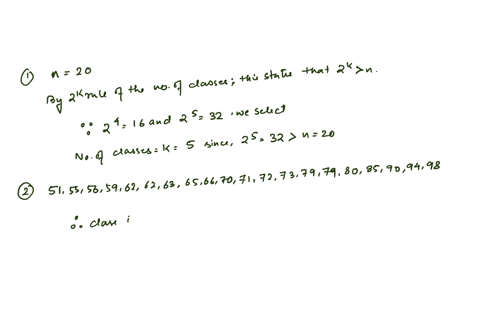 ① n = 20
By 2^k rule of the no. of classes; this states that 2^k > n.
∵ 2^4 = 16 and 2^5 = 32 . we select
No. of classes = k = 5 since, 2^5 = 32 > n = 20
② 51, 55, 58, 59, 62, 62, 63, 65, 66, 70, 71, 72, 73, 79, 79, 80, 85, 90, 94, 98
∴ class i